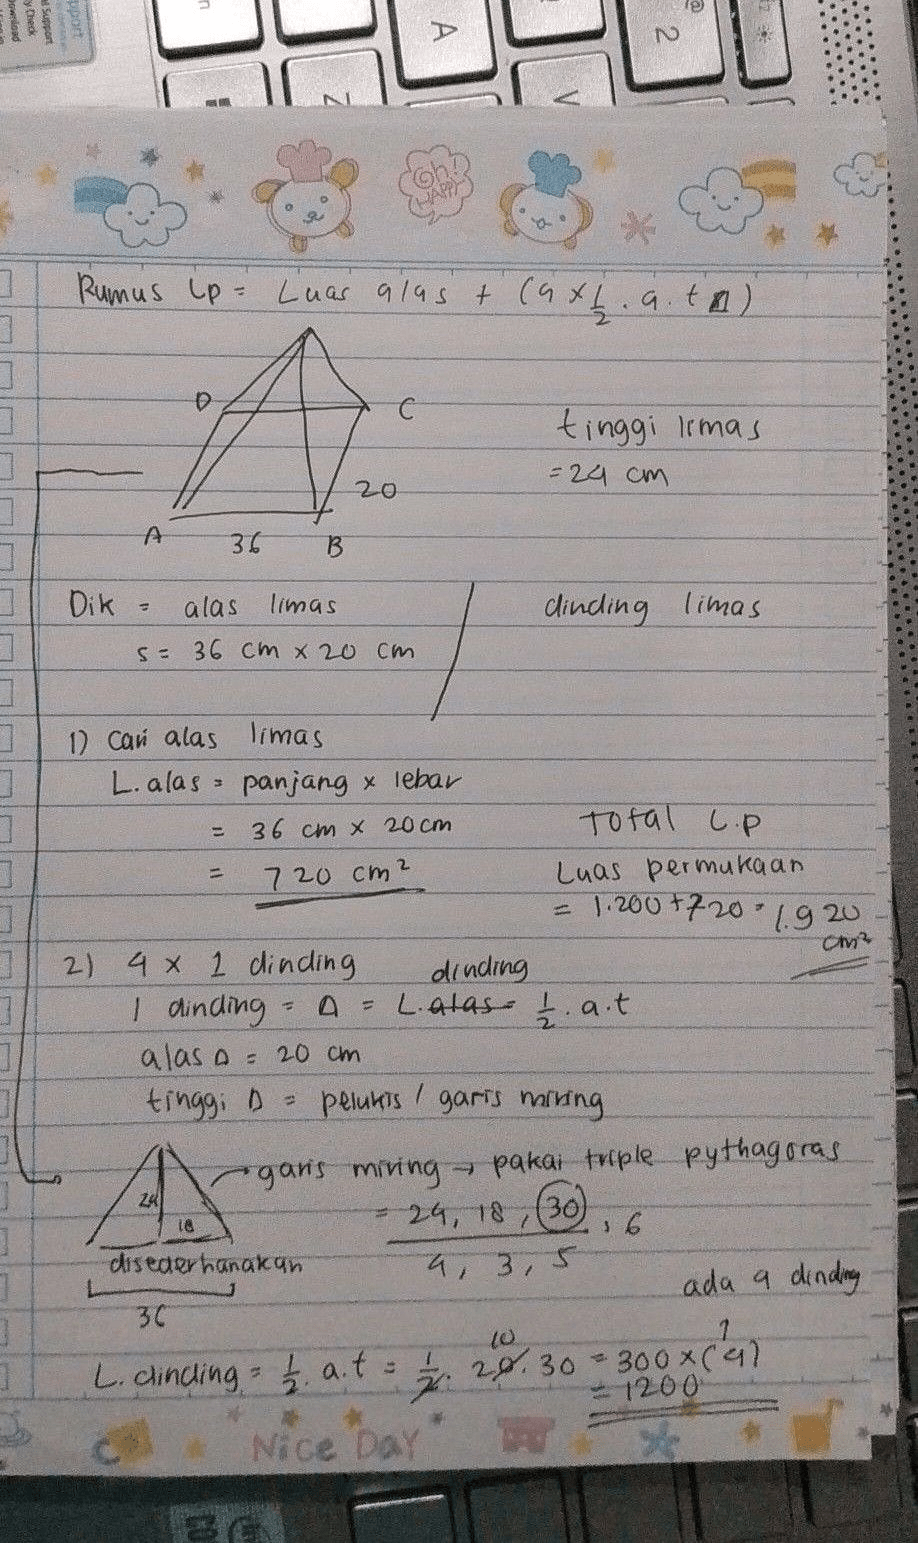 A
2
@
Z
V
Oh! HAPPY
Rumus Lp = Luas alas + (4 × 1/2 . a . t Δ)
D
C
tinggi limas
= 24 cm
20
A
36
B
Dik = alas limas
s = 36 cm × 20 cm
dinding limas
1) Cari alas limas
L. alas = panjang × lebar
= 36 cm × 20 cm
= 720 cm²
Total L.p
Luas permukaan
= 1.200 + 720 = 1.920
cm²
2) 4 × 1 dinding
dinding
1 dinding = Δ = L. alas = 1/2 . a.t
alas Δ = 20 cm
tinggi Δ = pelukis / garis miring
24
18
garis miring → pakai triple pythagoras
= 24, 18, 30 , : 6
4, 3, 5
disederhanakan
36
ada 4 dinding
L. dinding = 1/2 . a.t = 1/2 . 20 . 30 = 300 × (4)
10
= 1200
Nice Day